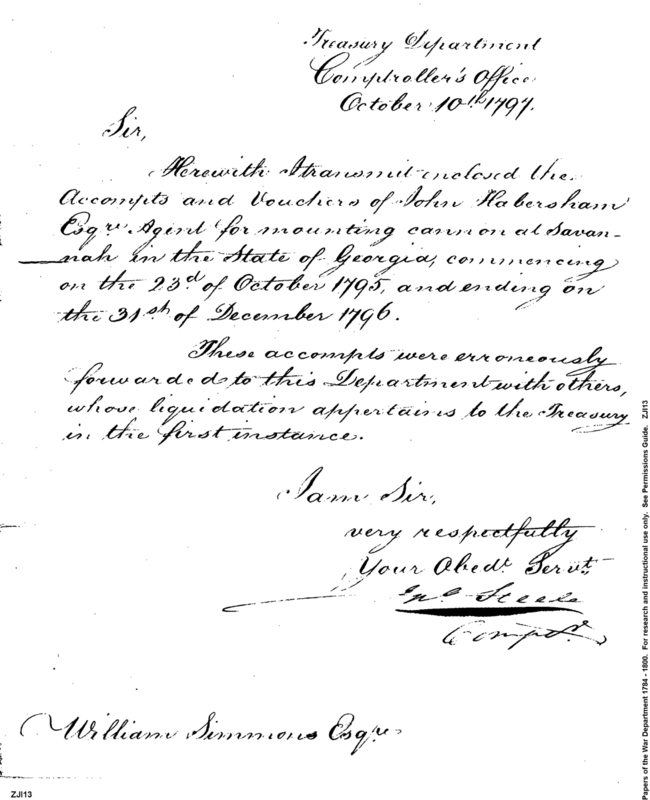 Treasury Department
Comptroller's Office
October 10th 1797.
Sir,
Herewith I transmit enclosed the
Accompts and Vouchers of John Habersham
Esqre. Agent for mounting cannon at Savan-
nah in the State of Georgia, commencing
on the 23d of October 1795, and ending on
the 31st of December 1796.
These accompts were erroneously
forwarded to this Department with others,
whose liquidation appertains to the Treasury
in the first instance.
I am Sir,
very respectfully
Your Obedt. Servt.
Jno. Steele
Compr.
William Simmons Esqre
ZJI13
Papers of the War Department 1784 - 1800. For research and instructional use only. See Permissions Guide. ZJI13